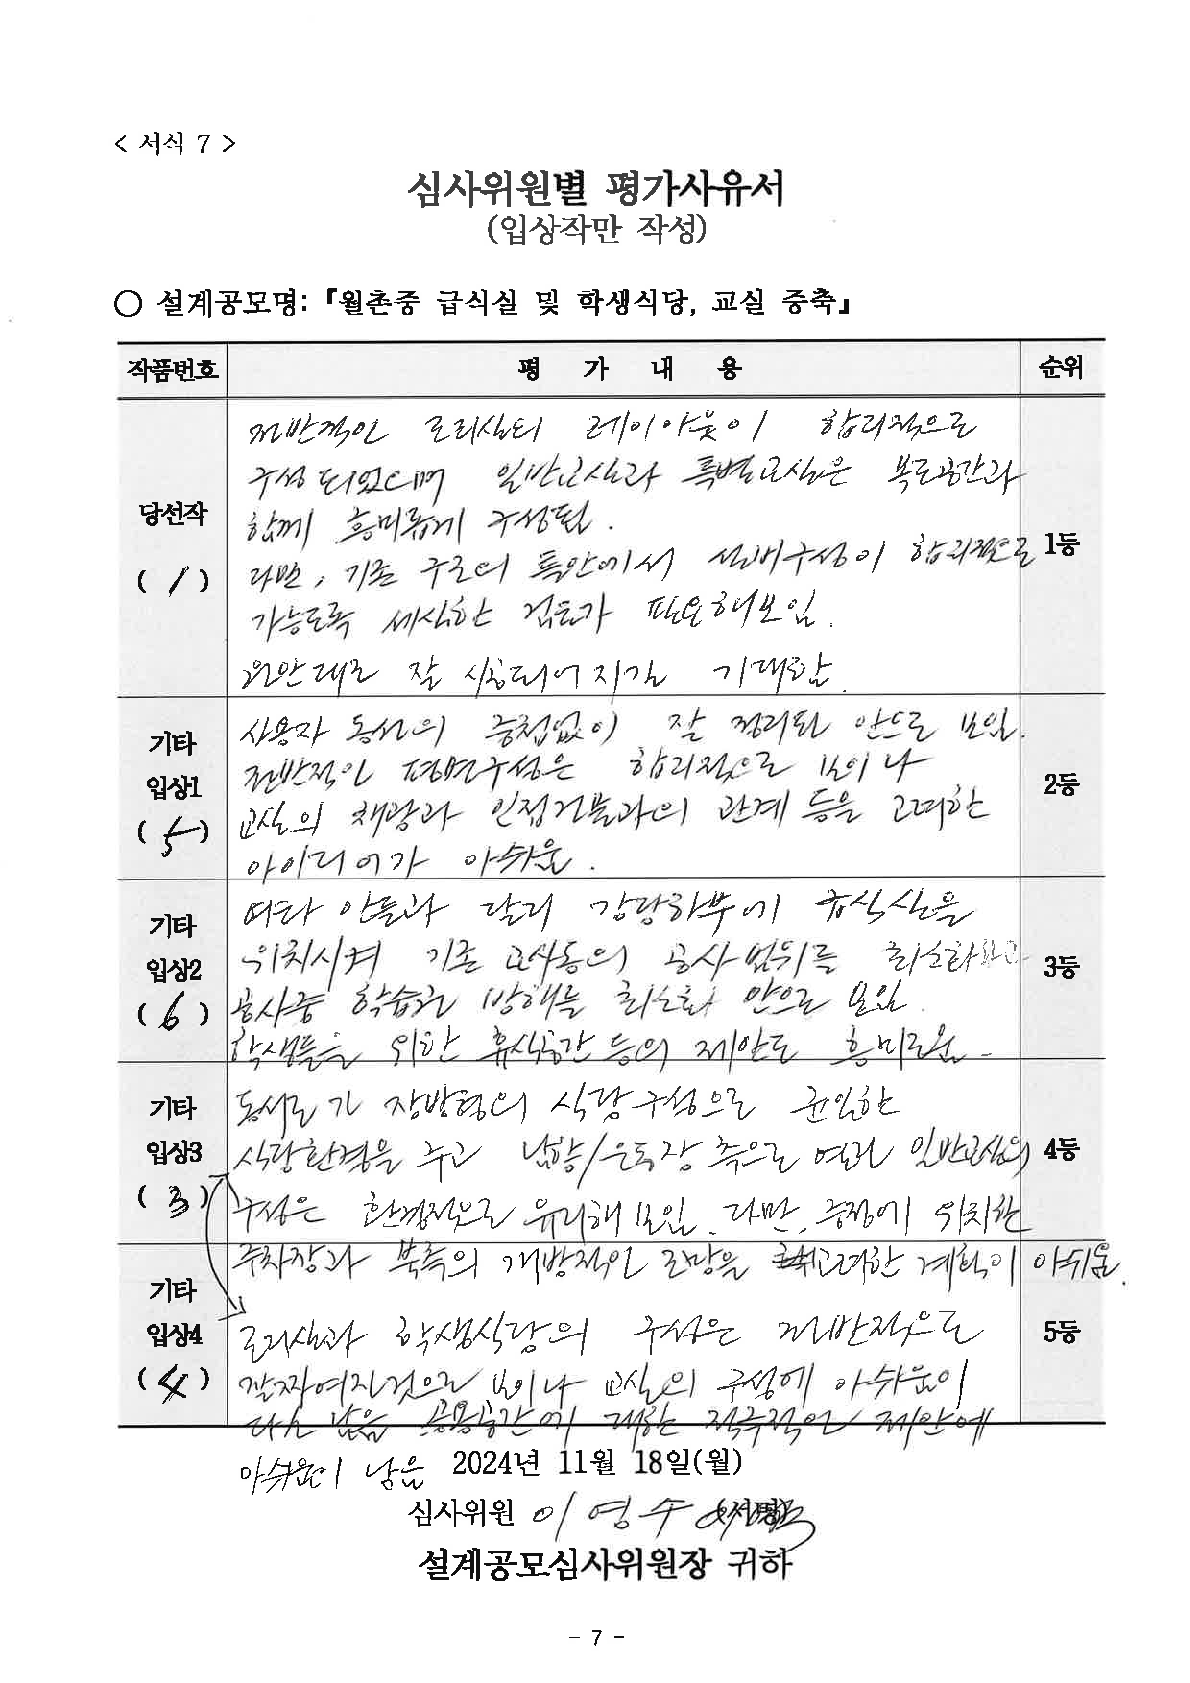 < 서식 7 >
심사위원별 평가사유서
(입상작만 작성)
○ 설계공모명:『월촌중 급식실 및 학생식당, 교실 증축』
작품번호 평 가 내 용 순위
당선작
( 1 )
전반적인 조리실의 레이아웃이 합리적으로
구성되었으며 일반교실과 특별교실은 복도공간과
함께 흥미롭게 구성됨.
다만, 기존 구조의 틀안에서 설비구성이 합리적으로
가능토록 세심한 검토가 필요해보임.
원안대로 잘 시공되어지길 기대함.
1등
기타
입상1
( 5 )
사용자 동선의 중첩없이 잘 정리된 안으로 보임.
전반적인 평면구성은 합리적으로 보이나
교실의 채광과 인접건물과의 관계 등을 고려한
아이디어가 아쉬움.
2등
기타
입상2
( 6 )
여타 안들과 달리 강당하부에 급식실을
위치시켜 기존 교사동의 공사 범위를 최소화하고
공사중 학습권 방해를 최소화 안으로 보임.
학생들을 위한 휴식공간 등의 제안도 흥미로움.
3등
기타
입상3
( 3 )
동서로 가 장방형의 식당구성으로 균일한
식당환경을 주고 남향/운동장 측으로 열린 일반교실의
구성은 환경적으로 유리해 보임. 다만, 중정에 위치한
주차장과 북측의 개방적인 조망을 고려한 계획이 아쉬움.
4등
기타
입상4
( 4 )
조리실과 학생식당의 구성은 전반적으로
잘짜여진것으로 보이나 교실의 구성에 아쉬움이
다소 남음 공용공간에 대한 적극적인 제안에
아쉬움이 남음
5등
2024년 11월 18일(월)
심사위원 이 영 수
설계공모심사위원장 귀하
- 7 -